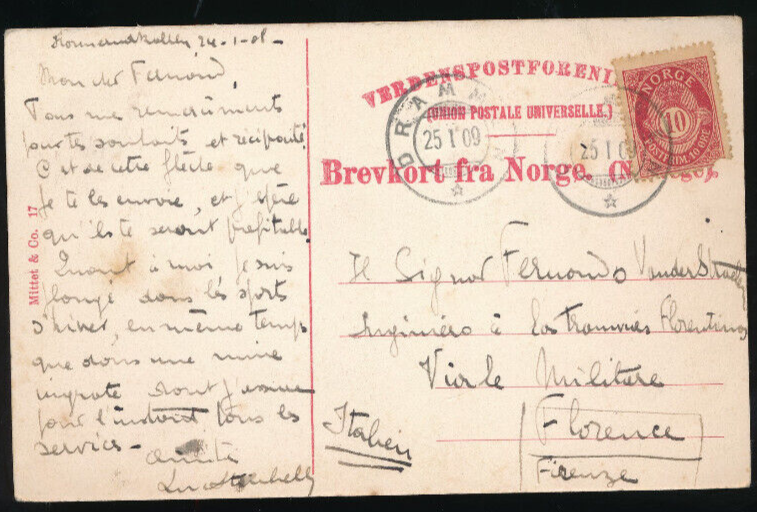 24-1-08-
Mon cher Fernand,
Tous mes remerciments
pour tes souhaits et réciprocité
C'est de cette flèche que
Je te les envoie, et j'espère
qu'ils te seront profitable.
Quant à moi je suis
plongé dans les sports
d'hiver, en même temps
que dans une mine
ingrate dont j'assume
pour l'instant tous les
services-
Amitié
Mittet & Co. 17
VERDENSPOSTFORENI
(UNION POSTALE UNIVERSELLE.)
Brevkort fra Norge. (N
DRAMM
25 I 09
25 I 09
NORGE
10
POSTFRIM. 10 ØRE
Il Signor Fernando VanderStraeten
Ingéniero à Los tramvies Florentinos
Viale Militare
Florence
Firenze
Italien